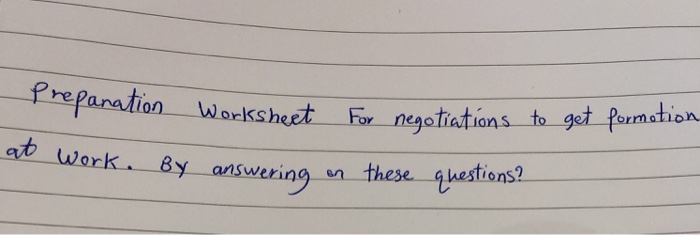 Preparation Worksheet For negotiations to get formotion
at work. By answering on these questions?